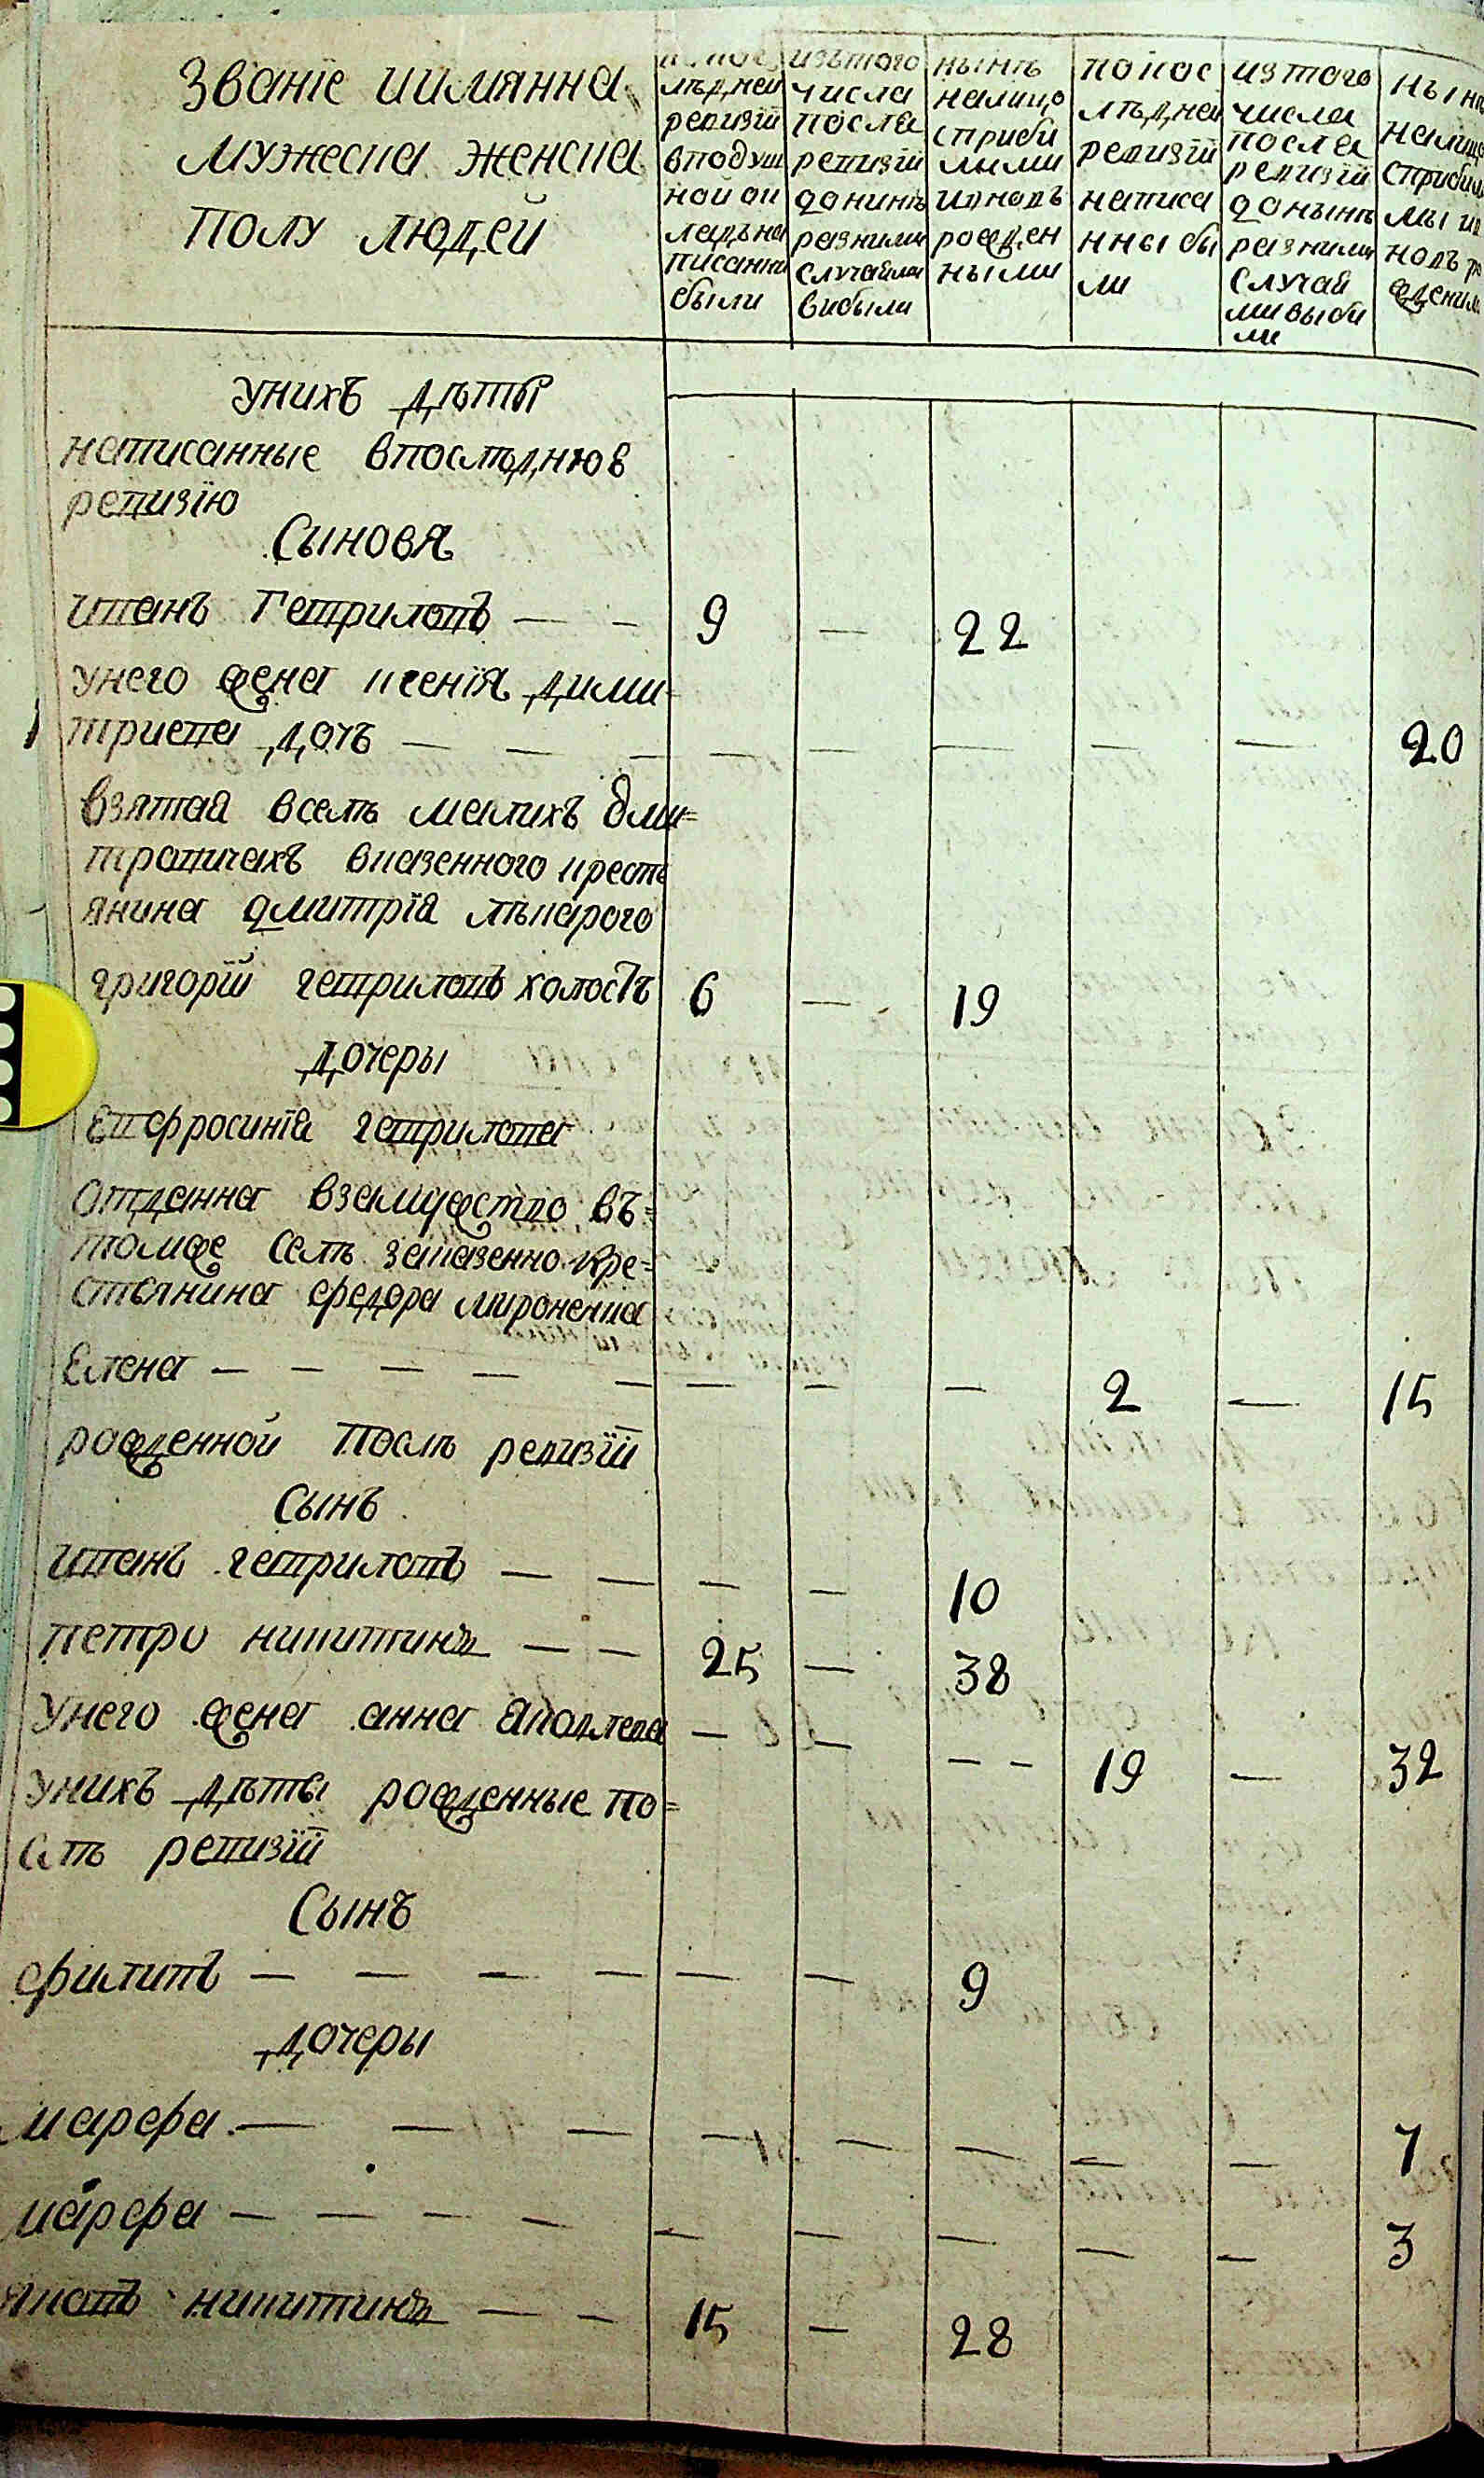 Званіе иимянна
мужеска женска
полу людей
по пос
лѣдней
ревизіи
вподуш
ной ок
ладъ на
писанны
были
изътого
числа
после
ревизіи
донинѣ
разними
случаями
вибыли
нынѣ
налицо
сприби
лыми
ивновъ
рожден
ными
по пос
лѣдней
ревизіи
написа
нны бы
ли
изтого
числа
после
ревизіи
донынѣ
разними
случая
ми выби
ли
нынѣ
налицо
сприбил
мы ив
новъ ро
жденим
унихъ дѣты
написанные впослѣднюю
ревизію
Сыновя
иванъ Гавриловъ — — 9 — 22
унего жена ксенія дими-
триева дочь — — — — — — — — 20
взятая вселѣ малихъ дми-
тровичахъ вказенного кресть
янина дмитрія лѣкарого
григорій гавриловъ холостъ 6 — 19
дочеры
Евфросинія гаврилова
отданна взамужство въ-
томже селѣ заказенно кре-
стянина федора мироненка
Елена — — — — — — — — 2 — 15
рожденной послѣ ревизіи
Сынъ
иванъ гавриловъ — — — — 10
петро никитинъ — — 25 — 38
Унего жена анна яковлева — — — — 19 — 32
унихъ дѣты рожденные по-
слѣ ревизіи
Сынъ
филипъ — — — — — — 9
дочеры
марфа — — — — — — — — 7
марфа — — — — — — — — — 3
яковъ никитинъ — — 15 — 28